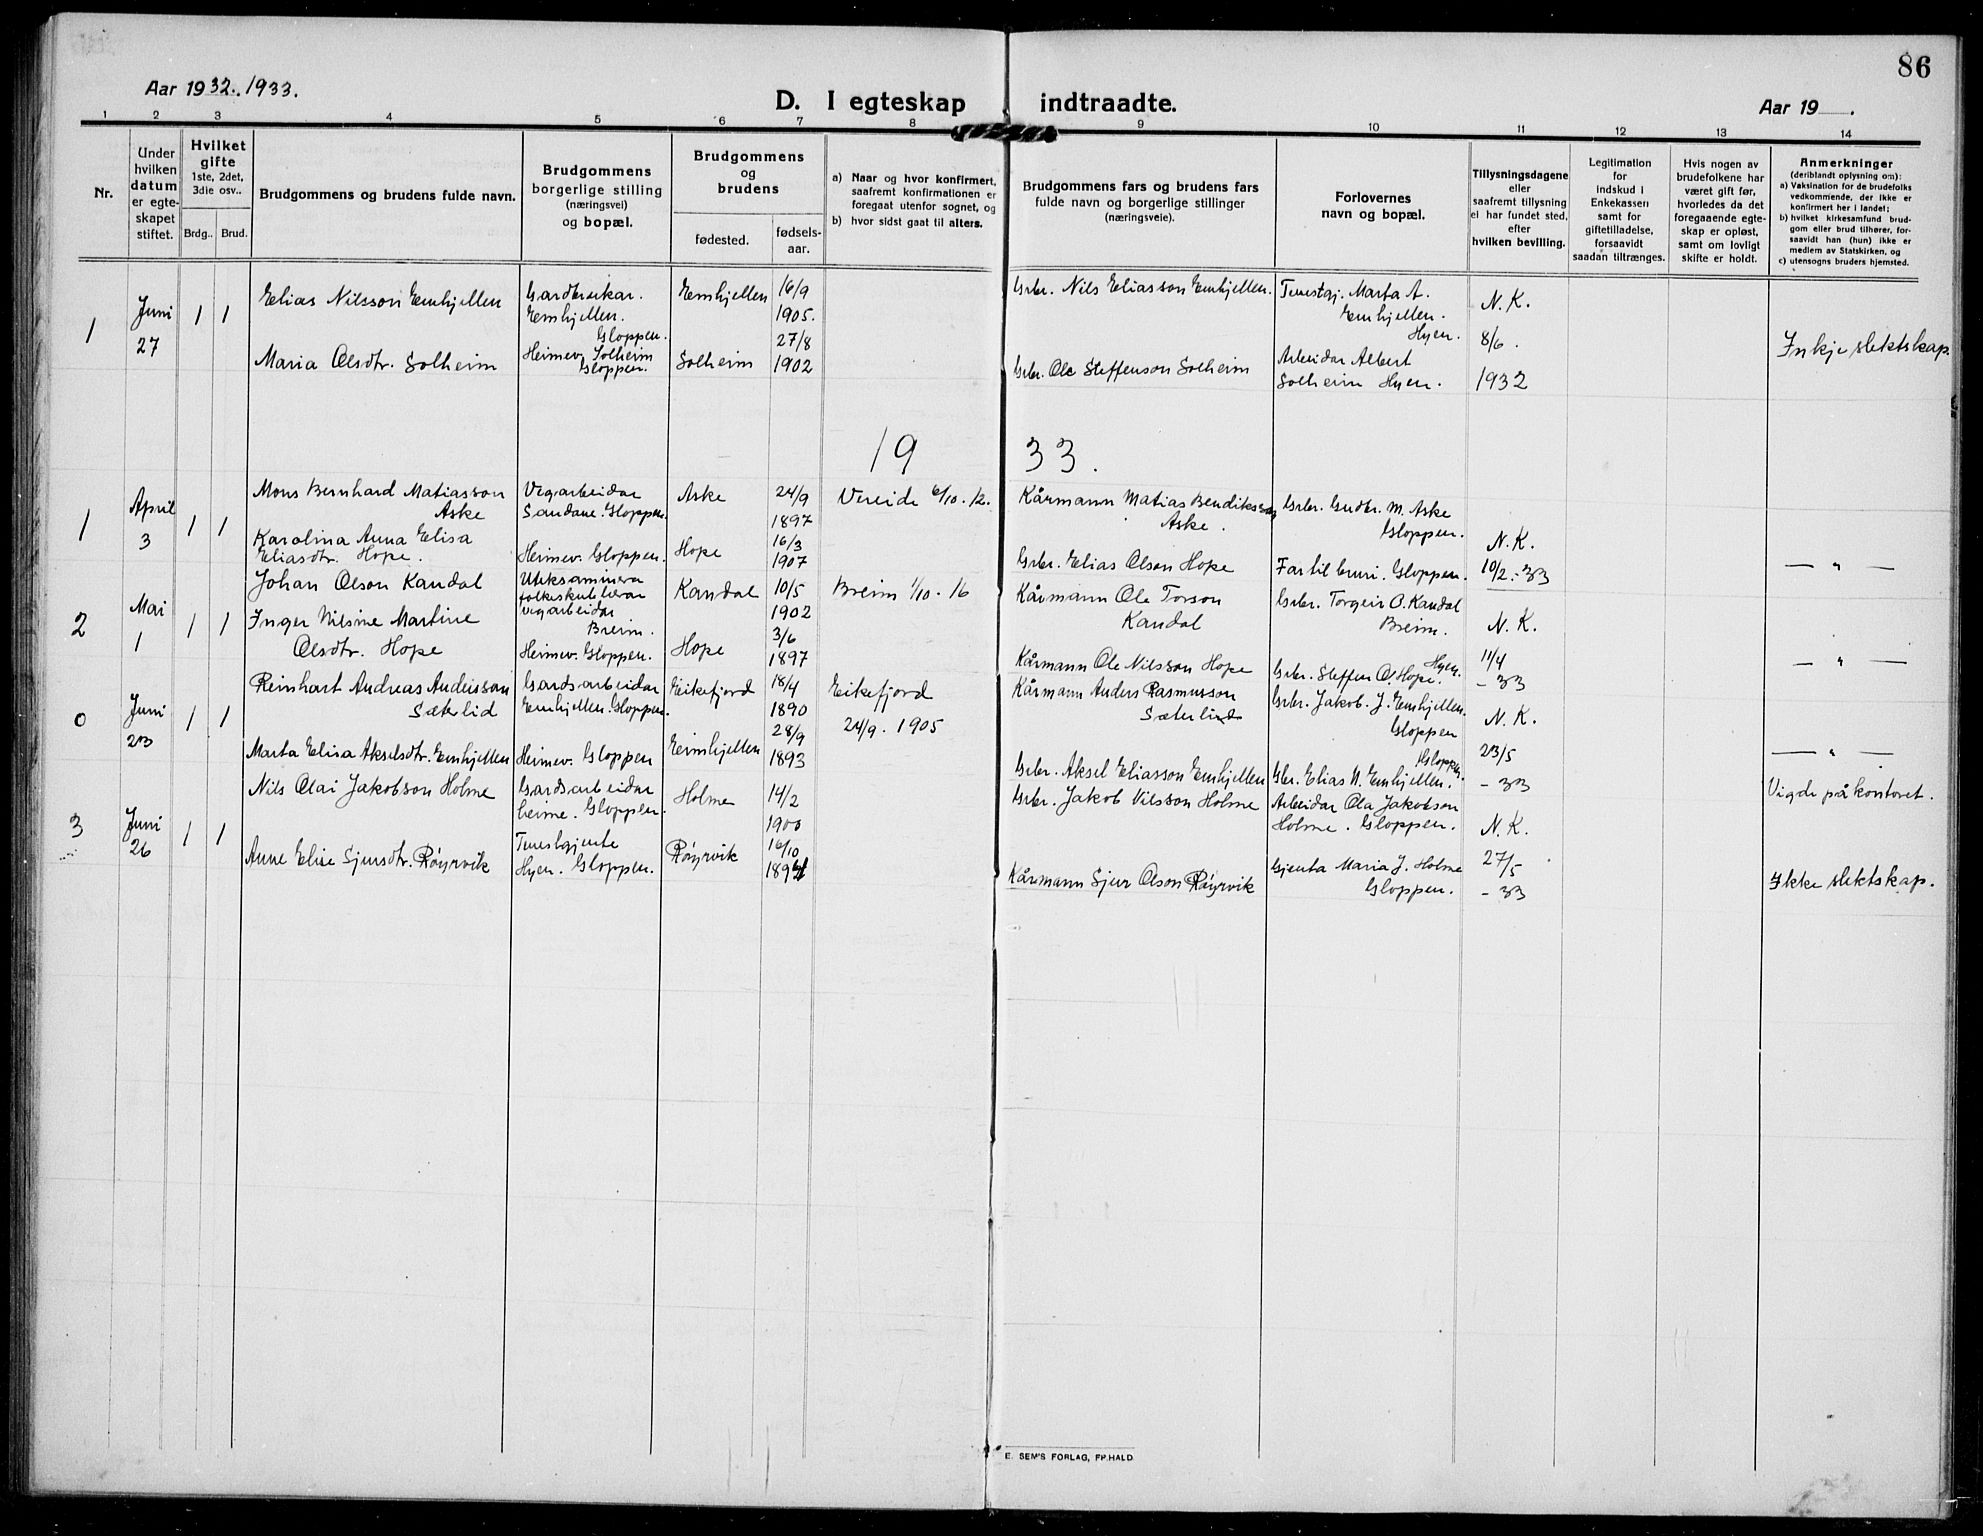 86
Aar 1932. 1933.
D. I egteskap indtraadte.
Aar 19 .
1 2 3 4 5 6 7 8 9 10 11 12 13 14
Nr.
Under hvilken datum er egteskapet stiftet.
Hvilket gifte 1ste, 2det, 3die osv..
Brdg.. Brud.
Brudgommens og brudens fulde navn.
Brudgommens borgerlige stilling (næringsvei) og bopæl.
Brudgommens og brudens
fødested. fødselsaar.
a) Naar og hvor konfirmert, saafremt konfirmationen er foregaat utenfor sognet, og
b) hvor sidst gaat til alters.
Brudgommens fars og brudens fars fulde navn og borgerlige stillinger (næringsveie).
Forlovernes navn og bopæl.
Tillysningsdagene eller saafremt tillysning ei har fundet sted, efter hvilken bevilling.
Legitimation for indskud i Enkekassen samt for giftetilladelse, forsaavidt saadan tiltrænges.
Hvis nogen av brudefolkene har været gift før, hvorledes da det foregaaende egteskap er opløst, samt om lovligt skifte er holdt.
Anmerkninger (deriblandt oplysning om):
a) Vaksination for de brudefolks vedkommende, der ikke er konfirmert her i landet;
b) hvilket kirkesamfund brudgom eller brud tilhører, forsaavidt han (hun) ikke er medlem av Statskirken, og
c) utensogns bruders hjemsted.
1 Juni 27 1 1
Elias Nilsson Emhjellen Gardbrukar. Emhjellen. Gloppen. Emhjellen 16/9 1905.
Gbr. Nils Eliasson Emhjellen. Tenestgj. Marta A. Emhjellen. Hyen. N. K. 8/6. 1932
Maria Olsdtr. Solheim Heimev. Solheim Gloppen. Solheim 27/8 1902
Gbr. Ole Steffenson Solheim Arbeidar Albert Solheim Hyen. Inkje slektskap.
1933.
1 April 3 1 1
Mons Bernhard Matiasson Aske Vegarbeidar Sandane. Gloppen. Aske 24/9 1897 Vereide 6/10. 12.
Kårmann Matias Bendiksson Aske. Gbr. Gudbr. M. Aske Gloppen. N. K. 10/2. - 33
Karolina Anna Elisa Eliasdtr. Hope. Heimev. Gloppen. Hope 16/3 1907
Gbr. Elias Olson Hope Far til bruri. Gloppen. — " —
2 Mai 1 1 1
Johan Olson Kandal Uteksaminera folkeskulelærar vegarbeidar Breim. Kandal 10/5 1902 Breim 1/10. 16
Kårmann Ole Torson Kandal Gbr. Torgeir O. Kandal Breim. N. K. 11/4 - 33
Inger Nilsine Martine Olsdtr. Hope Heimev. Gloppen. Hope 3/6 1897
Kårmann Ole Nilsson Hope Gbr. Steffen O. Hope. Hyen. — " —
0 Juni 23 1 1
Reinhart Andreas Andersson Sæterlid Gardsarbeidar Emhjellen. Gloppen. Eikefjord 18/4 1890 Eikefjord 24/9. 1905
Kårmann Anders Rasmusson Sæterlid Gbr. Jakob. J. Emhjellen. Gloppen N. K. 23/5 - 33
Marta Elisa Akselsdtr. Emhjellen Heimev. Gloppen Eimhjellen 28/9 1893
Gbr. Aksel Eliasson Emhjellen Gbr. Elias N. Emhjellen. Gloppen. — " —
3 Juni 26 1 1
Nils Olai Jakobson Holme Gardsarbeidar heime. Gloppen. Holme 14/2 1900
Gbr. Jakob Nilsson Holme Arbeidar Ola Jakobson Holme. Gloppen. N. K. 27/5 - 33 Vigde på kontoret.
Anne Elise Sjursdtr. Röyrvik Tenestgjente Hyen. Gloppen. Röyrvik 16/10
Kårmann Sjur Olson Röyrvik Gjenta Maria J. Holme Gloppen. Ikke slektskap.
E. SEM'S FORLAG, FR.HALD